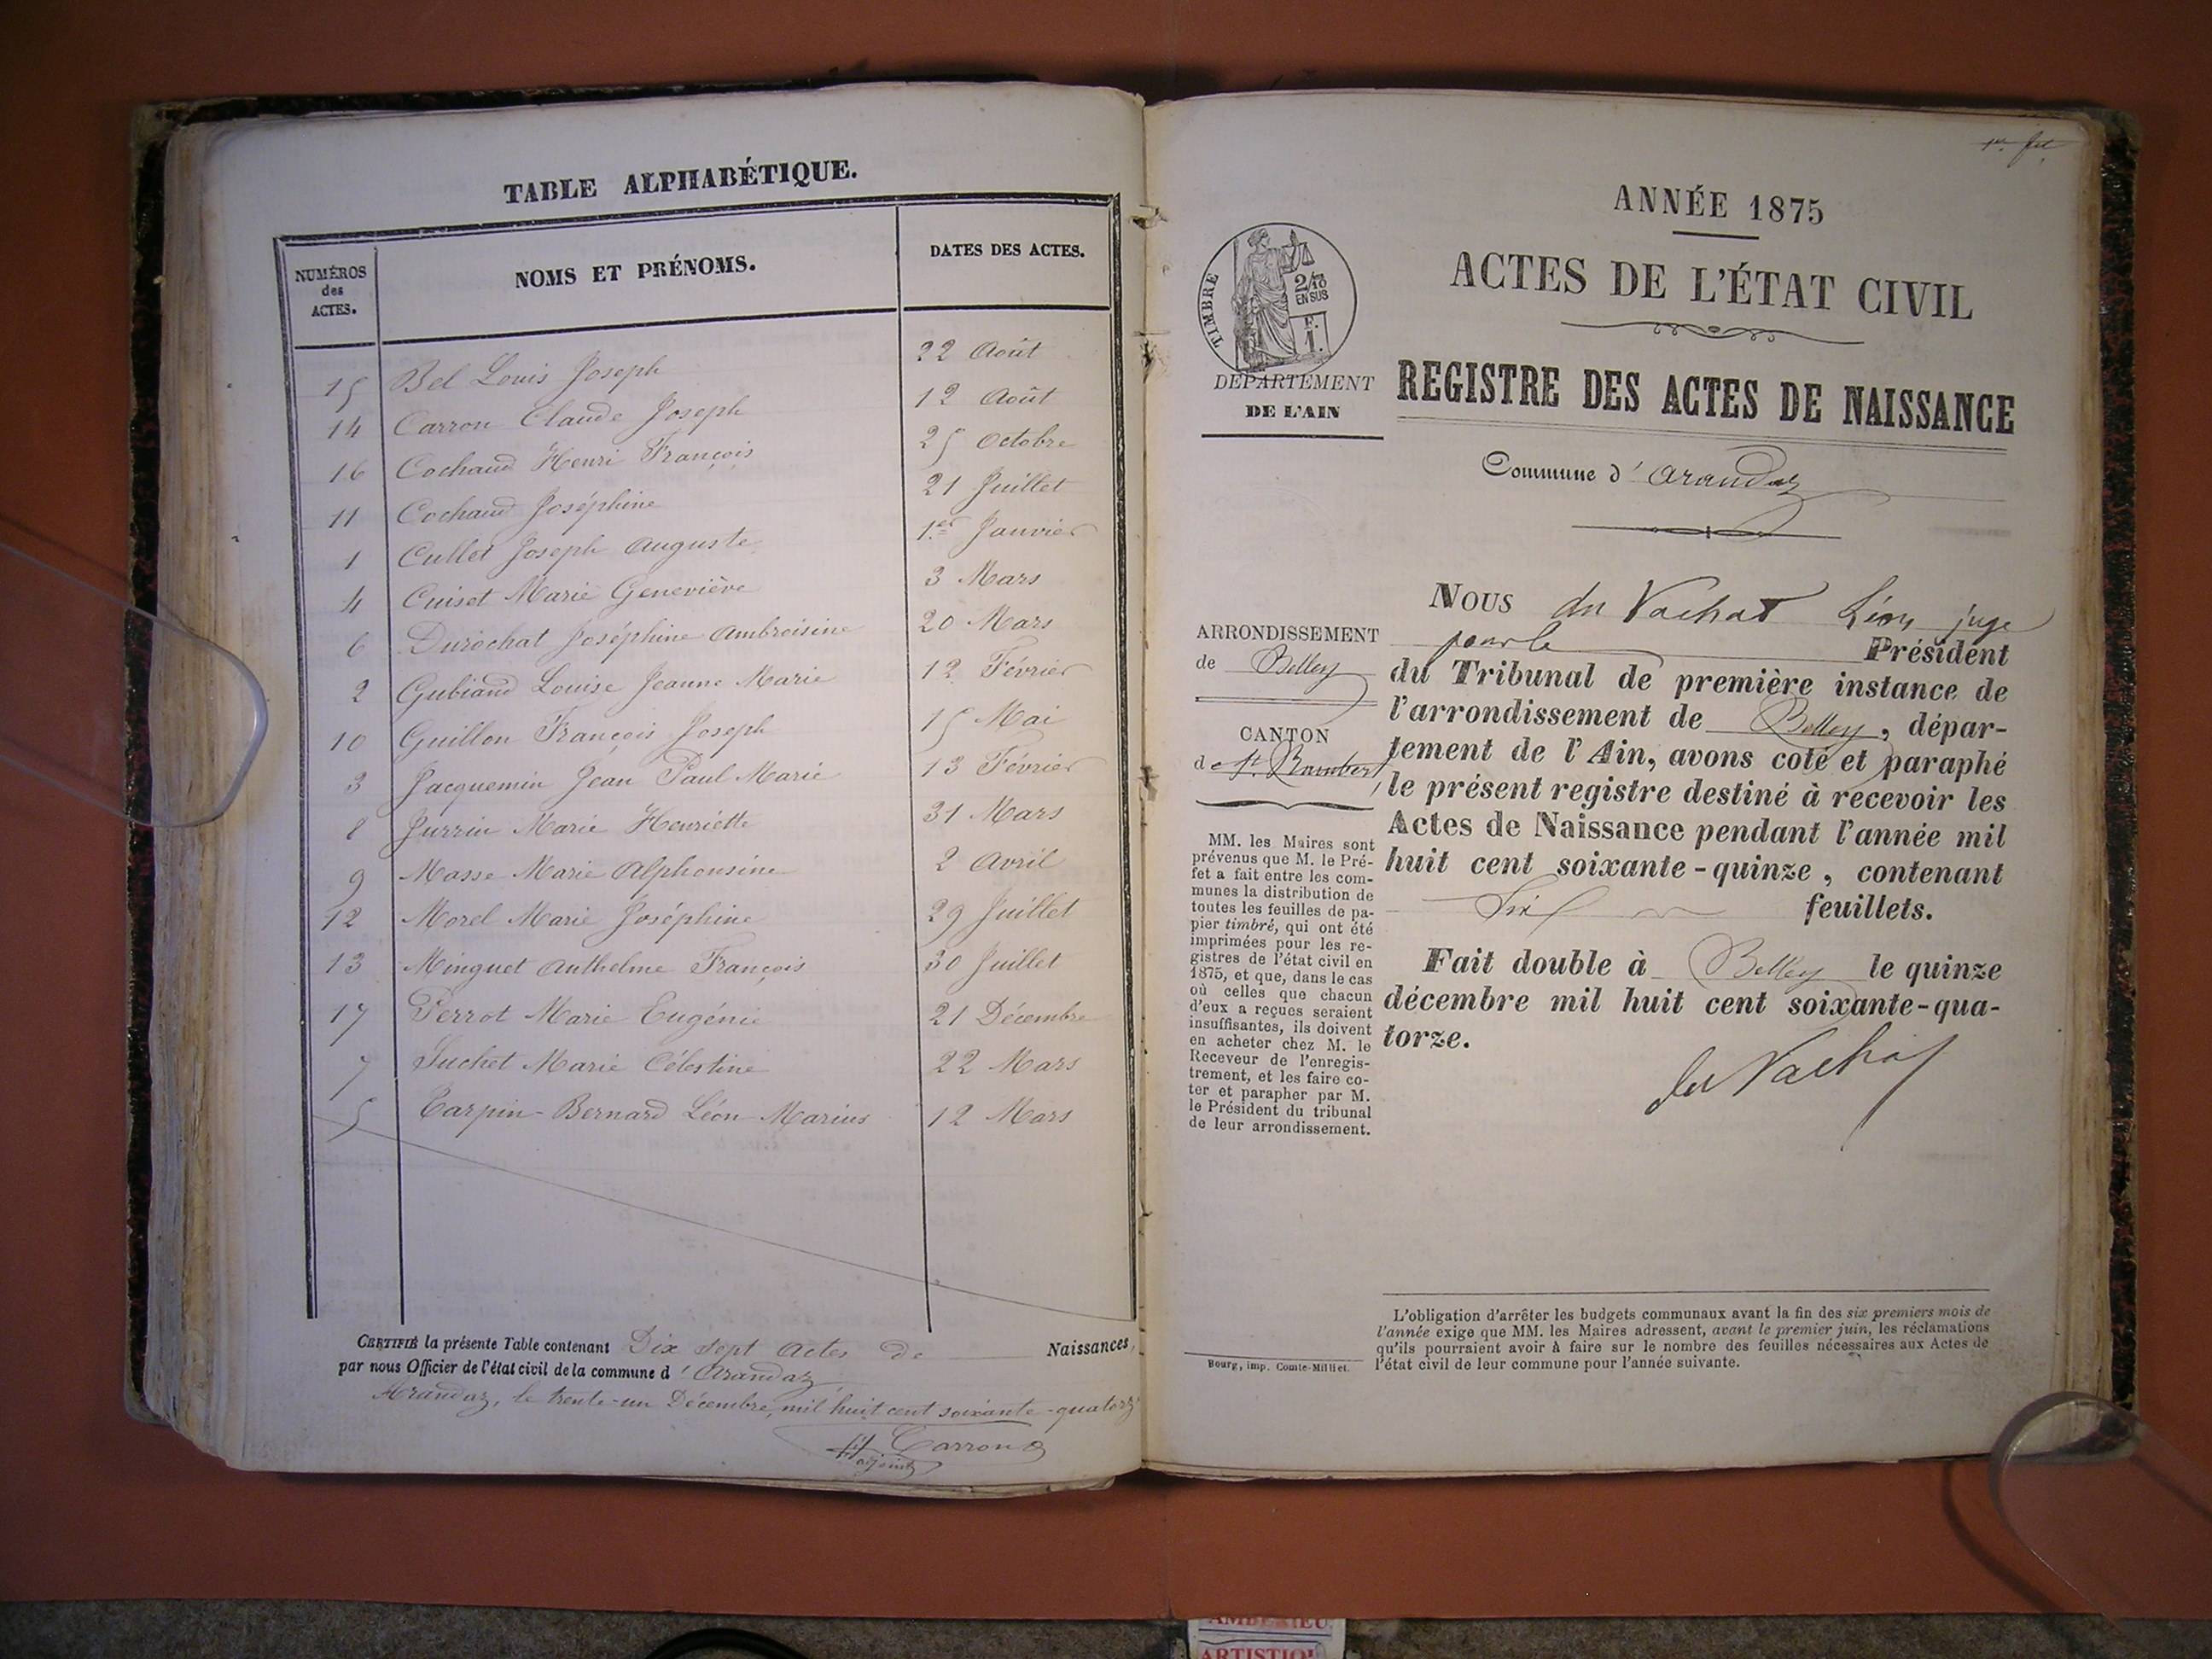 TABLE ALPHABÉTIQUE.
NUMÉROS des ACTES. NOMS ET PRÉNOMS. DATES DES ACTES.
15 Bel Louis Joseph 22 Août
14 Carron Claude Joseph 12 Août
16 Cochaud Henri François 25 Octobre
11 Cochaud Joséphine 21 Juillet
1 Cullet Joseph Auguste 1er Janvier
4 Cuiset Marie Geneviève 3 Mars
6 Durochat Joséphine Ambroisine 20 Mars
2 Gubiand Louise Jeanne Marie 12 Février
10 Guillon François Joseph 15 Mai
3 Jacquemin Jean Paul Marie 13 Février
8 Jurrin Marie Henriette 31 Mars
9 Masse Marie Alphonsine 2 Avril
12 Morel Marie Joséphine 29 Juillet
13 Minguet Anthelme François 30 Juillet
17 Perrot Marie Eugénie 21 Décembre
7 Suchet Marie Célestine 22 Mars
5 Carpin-Bernard Léon Marius 12 Mars
CERTIFIÉ la présente Table contenant Dix sept actes de Naissances,
par nous Officier de l'état civil de la commune d'Arandaz
Arandaz, le trente-un Décembre, mil huit cent soixante-quatorz
Carron
adjoint
ANNÉE 1875
ACTES DE L'ÉTAT CIVIL
TIMBRE
2/10
EN SUS
F.
1.
DÉPARTEMENT
DE L'AIN
REGISTRE DES ACTES DE NAISSANCE
Commune d'Arandaz
ARRONDISSEMENT
de Belley
CANTON
de St Rambert
MM. les Maires sont
prévenus que M. le Pré-
fet a fait entre les com-
munes la distribution de
toutes les feuilles de pa-
pier timbré, qui ont été
imprimées pour les re-
gistres de l'état civil en
1875, et que, dans le cas
où celles que chacun
d'eux a reçues seraient
insuffisantes, ils doivent
en acheter chez M. le
Receveur de l'enregis-
trement, et les faire co-
ter et parapher par M.
le Président du tribunal
de leur arrondissement.
Bourg, imp. Comte-Milliet.
NOUS du Vachat Léon, juge
pour le Président
du Tribunal de première instance de
l'arrondissement de Belley, dépar-
tement de l'Ain, avons coté et paraphé
le présent registre destiné à recevoir les
Actes de Naissance pendant l'année mil
huit cent soixante-quinze, contenant
Six feuillets.
Fait double à Belley le quinze
décembre mil huit cent soixante-qua-
torze.
du Vachat
L'obligation d'arrêter les budgets communaux avant la fin des six premiers mois de
l'année exige que MM. les Maires adressent, avant le premier juin, les réclamations
qu'ils pourraient avoir à faire sur le nombre des feuilles nécessaires aux Actes de
l'état civil de leur commune pour l'année suivante.